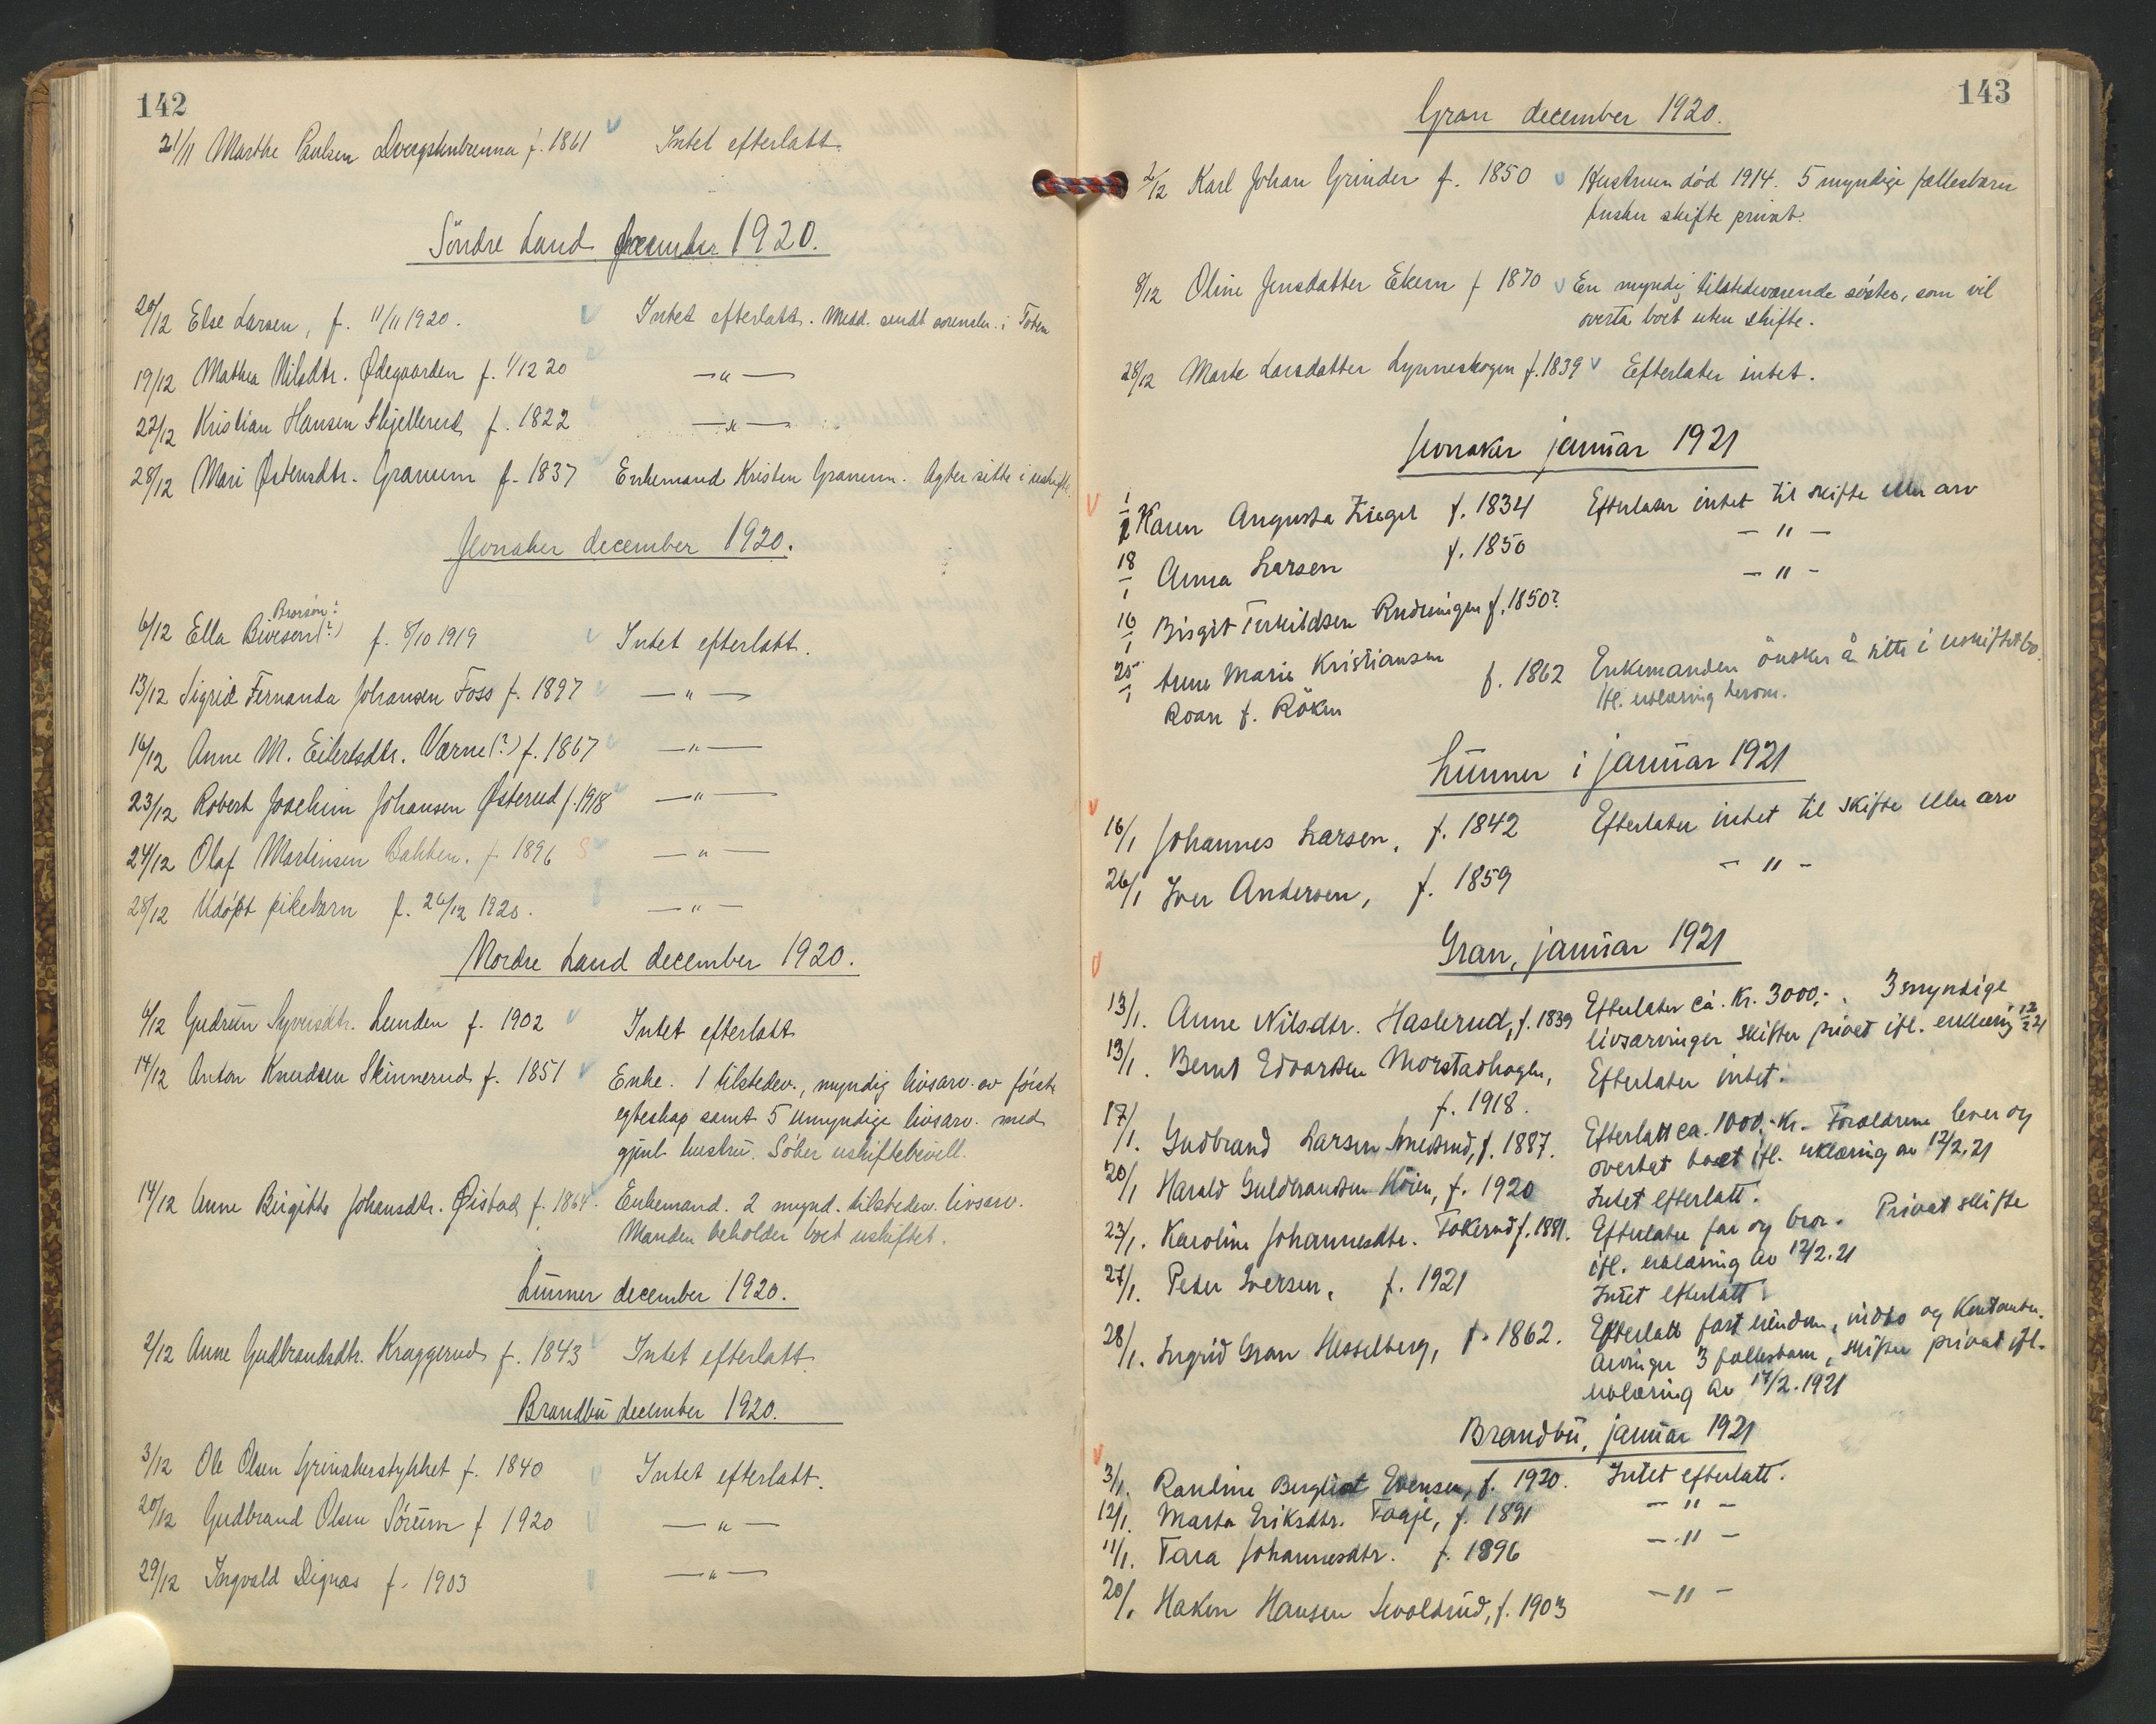 142
21/11 Marthe Paulsen f. 1861 Intet efterlatt.
Söndre Land december 1920.
20/12 Else Larsen, f. 11/11 1920. Intet efterlatt. Medd. sendt sorenskr. i Toten
19/12 Mathea Nilsdtr. Ødegaarden f. 1/12 20 — " —
22/12 Kristian Hansen Skjellerud f. 1822 — " —
28/12 Mari Østensdtr. Granum f. 1837 Enkemand Kristen Granum. Agter sitte i uskifte.
Jevnaker december 1920.
Brorson?
6/12 Ella Biversen(?) f. 8/10 1919 Intet efterlatt.
13/12 Sigrid Fernanda Johansen Foss f. 1897 — " —
16/12 Anne M. Eilertsdtr. Værne(?) f. 1867 — " —
23/12 Robert Joachim Johansen Østerud f. 1918 — " —
24/12 Olaf Martinsen Bakken. f. 1896 S — " —
28/12 Udöpt pikebarn f. 26/12 1920. — " —
Nordre Land december 1920.
6/12 Gudrun Syversdtr. Lunden f. 1902 Intet efterlatt
14/12 Anton Knudsen Skinnerud f. 1851 Enke. 1 tilstedev., myndig livsarv. av förste
egteskap samt 5 umyndige livsarv. med
gjenl. hustru. Söker uskiftebevill.
14/12 Anne Birgitte Johansdtr. Øistad f. 1864. Enkemand. 2 mynd. tilstedev. livsarv.
Manden beholder boet uskiftet.
Lunner december 1920.
2/12 Anne Gudbrandsdtr. Kraggerud f. 1843 Intet efterlatt
Brandbu december 1920.
3/12 Ole Olsen Grinakerstykket f. 1840 Intet efterlatt.
20/12 Gudbrand Olsen Sörum f. 1920 — " —
29/12 Ingvald Dignæs f. 1903 — " —
143
Gran december 1920.
2/12 Karl Johan Grinder f. 1850 Hustruen död 1914. 5 myndige fællesbarn
ønsker skifte privat.
8/12 Oline Jensdatter Ekern f. 1870 En myndig tilstedeværende søster, som vil
overta boet uten skifte.
28/12 Marte Larsdatter Lynneskogen f. 1839 Efterlater intet.
Jevnaker januar 1921
1/1 Karen Augusta Zriegel f. 1834 Efterlater intet til skifte eller arv
18/1 Anna Larsen f. 1850 — " —
16/1 Birgit Terkildsen Rudningen f. 1850? — " —
25/1 Anne Marie Kristiansen
Roan f. Röken f. 1862 Enkemanden önsker å sitte i uskiftet bo.
Ifl. erklæring herom.
Lunner i januar 1921
16/1 Johannes Larsen, f. 1842 Efterlater intet til skifte eller arv
26/1 Iver Andersen, f. 1859 — " —
Gran, januar 1921
13/1. Anne Nilsdtr. Haslerud, f. 1839 Efterlater ca. Kr. 3000,-. 3 myndige
livsarvinger skifter privat ifl. erklæring 12/2 21
13/1. Bernt Edvardsen Morstadhagen, Efterlater intet.
f. 1918.
17/1. Gudbrand Larsen Smedsrud, f. 1887. Efterlatt ca. 1000,- Kr. Forældrene lever og
overtat boet ifl. erklæring av 12/2. 21
20/1 Harald Guldbrandsen Höien, f. 1920 Intet efterlatt.
23/1. Karoline Johannesdtr. Tokerud f. 1881. Efterlater far og bror. Privat skifte
ifl. erklæring av 12/2. 21
27/1. Peder Iversen, f. 1921 Intet efterlatt.
28/1. Ingrid Gran Hesselberg, f. 1862. Efterlatt fast eiendom, indbo og Kontanter.
Arvinger 3 fællesbarn, skifter privat ifl.
erklæring av 17/2. 1921
Brandbu, januar 1921
3/1. Randine Bergliot Evensen, f. 1920. Intet efterlatt.
12/1. Marta Eriksdtr. Faaje, f. 1891 — " —
11/1. Tara Johannesdtr. f. 1896 — " —
20/1 Haken Hansen Hvoldrud, f. 1903 — " —